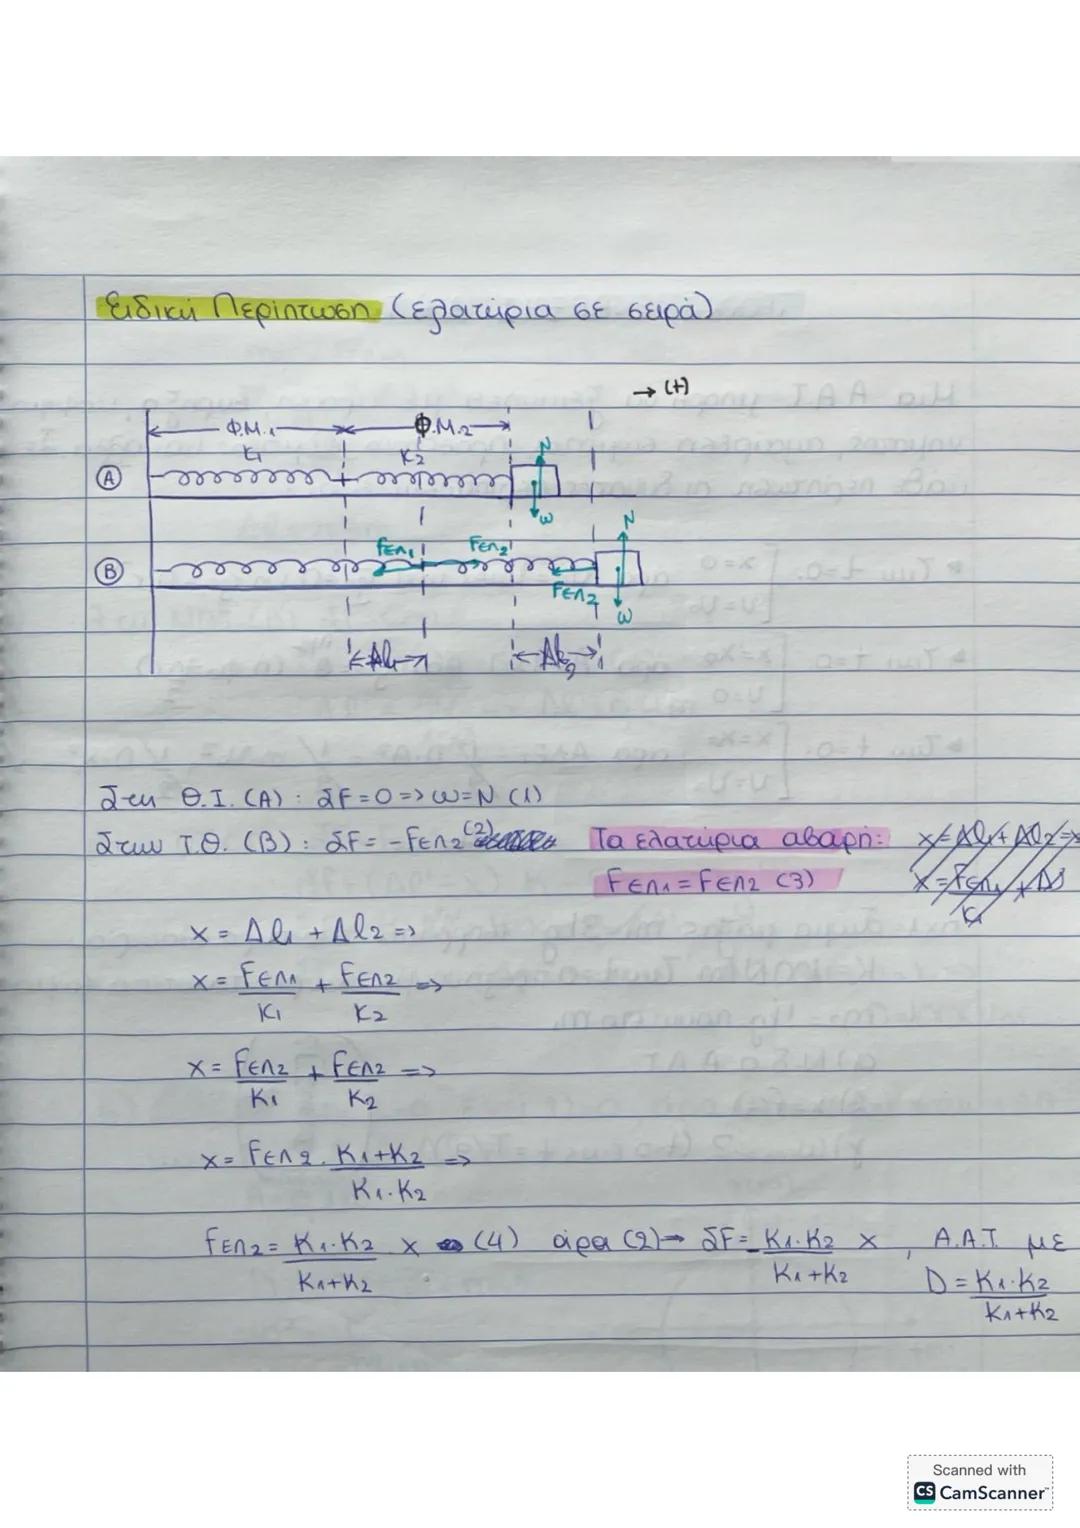 Ειδική Περίπτωση (ελατήρια σε σειρά)
→ (+)
Φ.Μ.1 Φ.Μ.2
K1 K2
Α
N
W
Β
Fελ1 Fελ2 N
Fελ2
W
Δl1 Δl2
Στη Θ.Ι. (Α): ΣF=0 => W=N (1)
Στην Τ.Θ. (Β): ΣF= -Fελ2 (2) Τα ελατήρια αβαρή: x=Δl1+Δl2=>
Fελ1 = Fελ2 (3) x=Fελ1/K1 +
x = Δl1 + Δl2 =>
x = Fελ1/K1 + Fελ2/K2 =>
x = Fελ2/K1 + Fελ2/K2 =>
x = Fελ2 . K1+K2/K1.K2 =>
Fελ2 = K1.K2/K1+K2 x (4) άρα (2)→ ΣF=-K1.K2/K1+K2 x , Α.Α.Τ. με
D = K1.K2/K1+K2
Scanned with
CS CamScanner